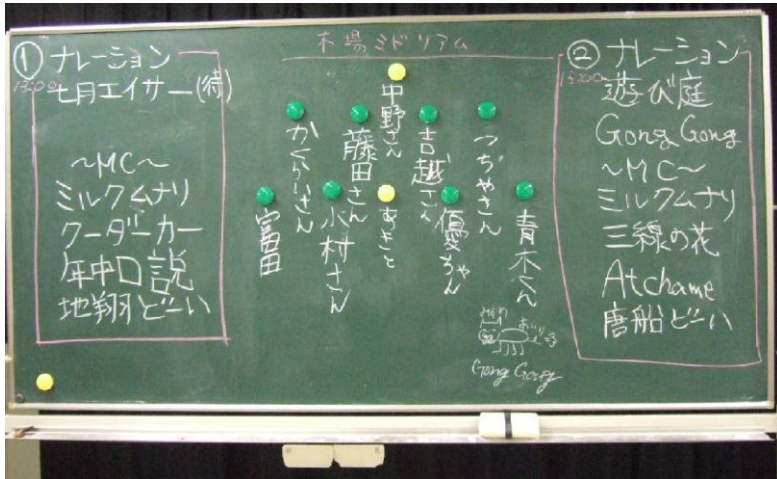 木場ミドリアム
① ナレーション
13:00
七月エイサー(待)
~MC~
ミルクムナリ
クーダーカー
年中口説
地翔どーい
中野さん
かくらいさん
藤田さん
吉越さん
つちやさん
富田
小村さん
あさと
優ちゃん
青木さん
Gong Gong
② ナレーション
遊び庭
Gong Gong
~MC~
ミルクムナリ
三線の花
Atchame
唐船どーい